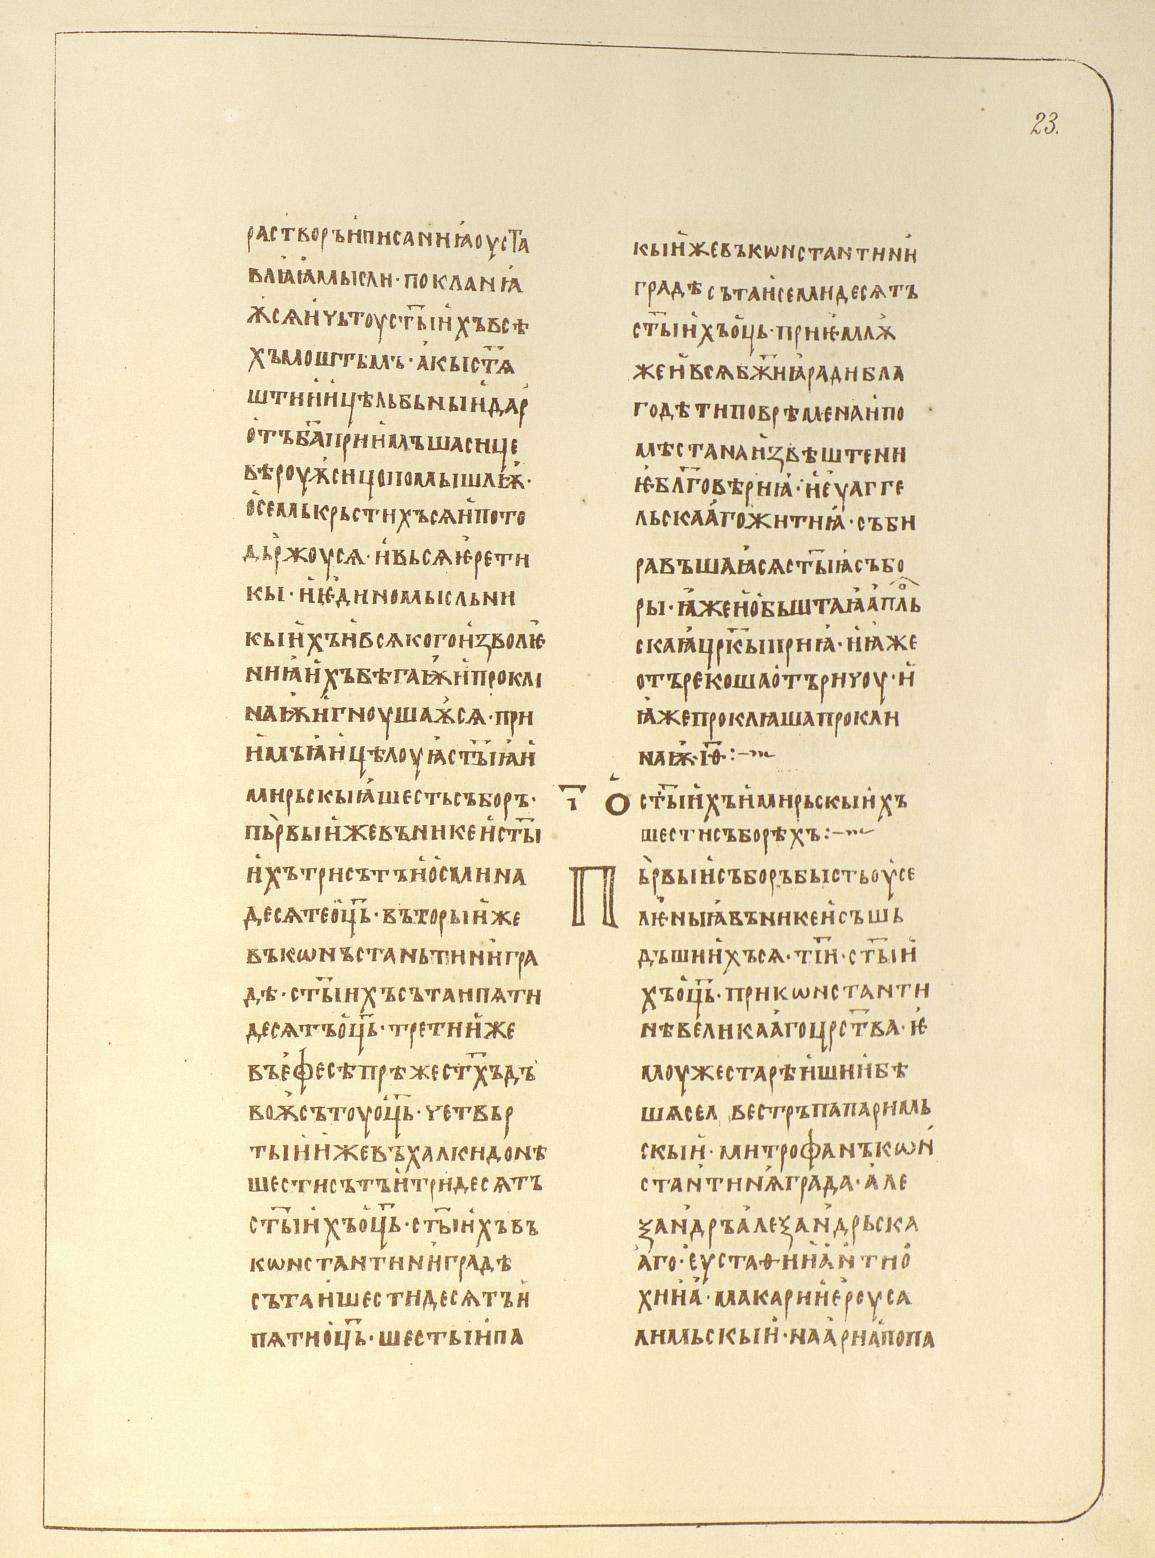 23.
растворъ и҆ писании҆ꙗ оуст҃а
влꙗѭ мысли · покланꙗ
ѫ сѧ и҆ чьтоу ст҃ыи҆хъ вьсѣ
хъ мощьмъ · а҆кы ст҃ѧ
штии҆и҆ цѣльбьныи҆ дар
отъ ба҃ прии҆мъша сице
вѣроуѭ сице помышлѭ ·
о҆ семь крьстихъсѧ и҆ по то
дьржоусѧ · и҆ вьсѧ ѥ҆рети
кы · и҆ ѥ҆диномысльни
кы и҆хъ и҆ всѧкого и҆зволѥ
ниꙗ и҆хъ бѣгаѭ и҆ прокли
наѭ и҆ гноушаѫсѧ · при
и҆мъꙗ и҆ цѣлоуꙗ ст҃ыꙗ и҆
мирьскыꙗ шесть съборъ ·
пьрвыи҆ же въ никеи҆ ст҃ы
и҆хъ три съ тъ и҆ о҆смь на
десѧте о҆ц҃ь · въторыи҆ же
въ кѡнъстаньтини҆ гра
дѣ · ст҃ыи҆хъ съта и пѧти
десѧтъ о҆ц҃ь · третии҆ же
въ е҆фесѣ прѣже ст҃хъ дъ
воѫ съту о҆ц҃ь · четвьр
тыи҆ же въ халкидонѣ
шести сътъ и҆ три десѧтъ
ст҃ыи҆хъ о҆ц҃ь · ст҃ыи҆хъ въ
кѡнстантини҆ градѣ
съта и҆ шести десѧтъ и҆
пѧти о҆ц҃ь · шестыи҆ па
кы и҆же въ кѡнстантини҆
градѣ съта и҆ семи десѧтъ
ст҃ыи҆хъ о҆ц҃ь · приѥмлѫ
же и҆ всѧ бж҃иꙗ ради бла
годѣти по врѣмена и҆ по
мѣста на и҆звѣштени
ѥ бл҃говѣриꙗ · и҆ е҆уагге
льскаа҆го житиꙗ · съби
равъшаꙗсѧ ст҃ыꙗ събо
ры · ꙗже и҆ о҆бьштаꙗ а҆пл҃ь
скаꙗ цр҃кы приꙗ · и҆ ꙗже
отърекоша отърицу · и҆
ꙗже проклѧша прокли
наѭ · і҃ѳ :~
і҃ о҆ ст҃ыи҆хъ и҆ мирьскыи҆хъ
шести съборѣхъ :~
Пьрвыи҆ съборъ бысть оу҆се
лѥныꙗ въ никеи҆ съшь
дъшии҆хъсѧ · ти҃и · ст҃ыи҆
хъ о҆ц҃ь · при кѡнстанти
нѣ великаа҆го цр҃ства · ѥ҆
моу же старѣи҆шии҆ бѣ
шѧ сел вестръ папа римь
скыи҆ · митрофанъ кѡн
стантинѧ града · а҆ле
ѯандръ а҆леѯандрьска
а҆го · е҆устаѳии҆ а҆нтио҆
хии҆а · макарии҆ е҆роуса
лимьскыи҆ · на а҆риꙗ попа